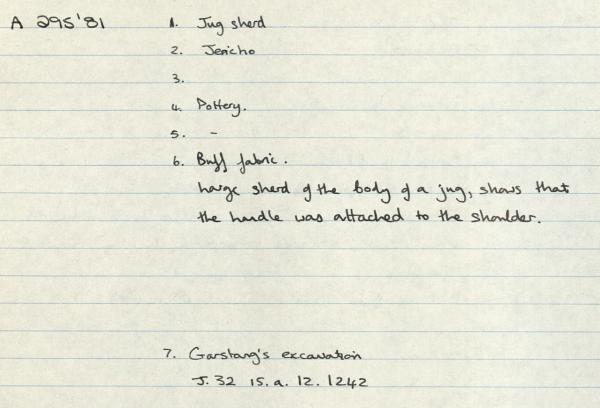 A 295'81 1. Jug sherd
2. Jericho
3.
4. Pottery.
5. -
6. Buff fabric.
Large sherd of the body of a jug, shows that
the handle was attached to the shoulder.
7. Garstang's excavation
J. 32 15. a. 12. 1242